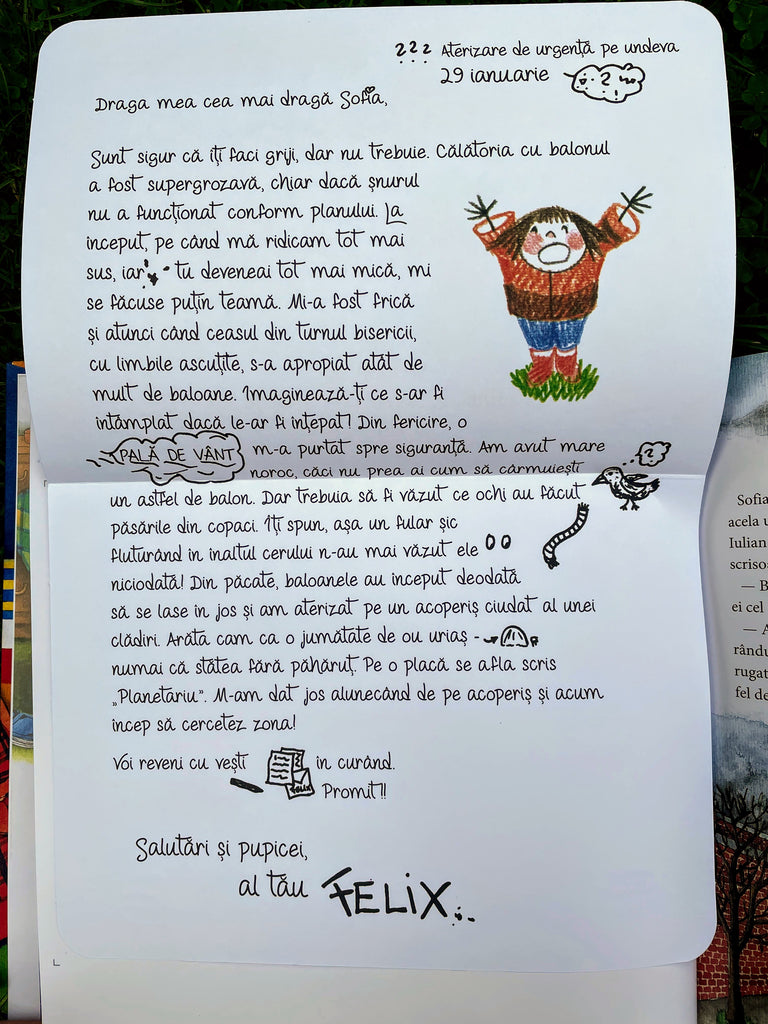 ??? Aterizare de urgență pe undeva
29 ianuarie
Draga mea cea mai dragă Sofia,
Sunt sigur că îți faci griji, dar nu trebuie. Călătoria cu balonul
a fost supergrozavă, chiar dacă șnurul
nu a funcționat conform planului. La
început, pe când mă ridicam tot mai
sus, iar tu deveneai tot mai mică, mi
se făcuse puțin teamă. Mi-a fost frică
și atunci când ceasul din turnul bisericii,
cu limbile ascuțite, s-a apropiat atât de
mult de baloane. Imaginează-ți ce s-ar fi
întâmplat dacă le-ar fi înțepat! Din fericire, o
PALĂ DE VÂNT m-a purtat spre siguranță. Am avut mare
noroc, căci nu prea ai cum să cârmuiești
?
un astfel de balon. Dar trebuia să fi văzut ce ochi au făcut
păsările din copaci. Îți spun, așa un fular șic
fluturând în înaltul cerului n-au mai văzut ele
niciodată! Din păcate, baloanele au început deodată
să se lase în jos și am aterizat pe un acoperiș ciudat al unei
clădiri. Arăta cam ca o jumătate de ou uriaș -
numai că stătea fără păhăruț. Pe o placă se afla scris
„Planetariu”. M-am dat jos alunecând de pe acoperiș și acum
încep să cercetez zona!
Voi reveni cu vești în curând.
FELIX
Promit!!
Salutări și pupicei,
al tău FELIX
Sofia
acela u
Iulian
scriso
— B
ei cel
— A
rându
rugat
fel de